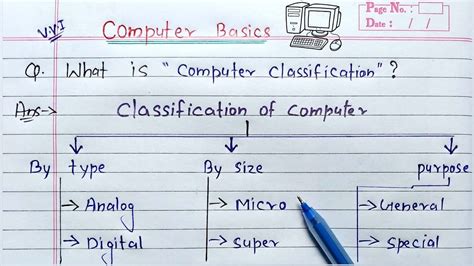 V.V.I
Computer Basics
Page No. :
Date : / /
Q. What is "Computer classification"?
Ans:->
Classification of computer
By type
By size
purpose
→ Analog
→ Micro
→ General
→ Digital
→ Super
→ Special